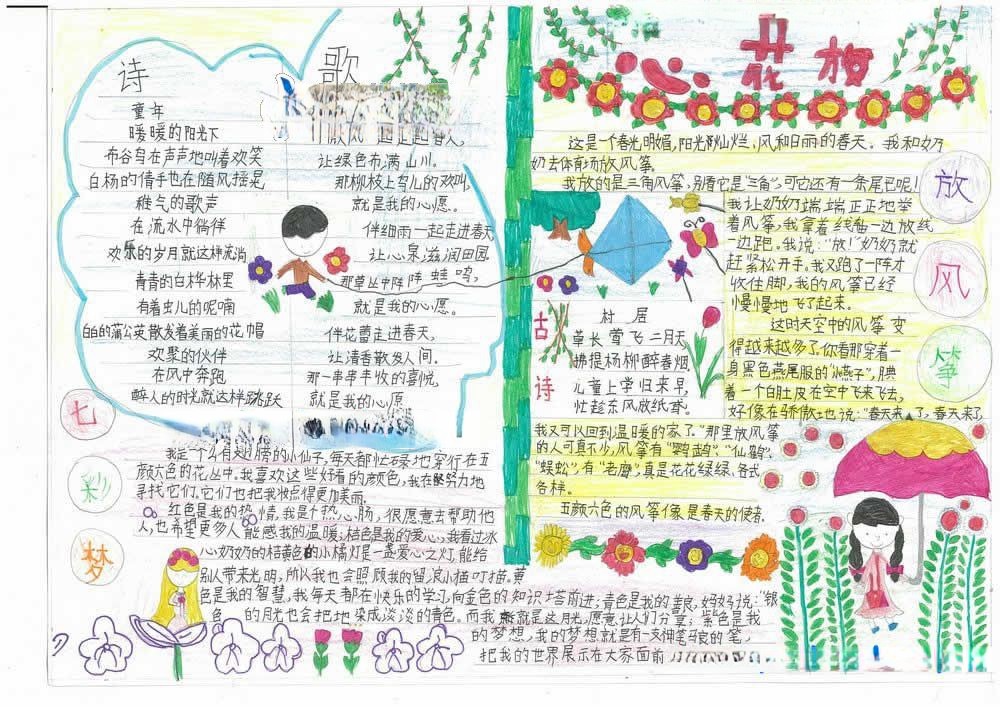 诗 歌
童年
暖暖的阳光下
布谷鸟在声声地叫着欢笑
白杨的倩手也在随风摇晃
稚气的歌声
在流水中徜徉
欢乐的岁月就这样流淌
青青的白桦林里
有着虫儿的呢喃
白白的蒲公英散发着美丽的花帽
欢聚的伙伴
在风中奔跑
醉人的时光就这样跳跃
让绿色布满山川。
那柳枝上鸟儿的欢叫,
就是我的心愿。
伴细雨一起走进春天
让心泉滋润田园
那草丛中阵阵蛙鸣,
就是我的心愿。
伴花蕾走进春天,
让清香散发人间。
那一串串丰收的喜悦,
就是我的心愿
七
彩
梦
我是一个有翅膀的小仙子,每天都忙碌地穿行在五
颜六色的花丛中。我喜欢这些好看的颜色,我在努力地
寻找它们,它们也把我妆点得更加美丽.
红色是我的热情,我是个热心肠,很愿意去帮助他
人,也希望更多人能感我的温暖;桔色是我的爱心,我看过冰
心奶奶的桔黄色的小橘灯是一盏爱心之灯,能给
别人带来光明,所以我也会照顾我的留浪小猫叮猫。黄
色是我的智慧,我每天都在快乐的学习,向金色的知识塔前进;青色是我的善良,妈妈说:“银
色的月光也会把地染成淡淡的青色。而我就是这月光,愿意让人们分享;紫色是我
的梦想,我的梦想就是有一支神笔马良的笔,
把我的世界展示在大家面前
心花放
这是一个春光明媚,阳光灿烂,风和日丽的春天。我和奶
奶去体育场放风筝。
我放的是三角风筝,别看它是“三角”,可它还有一条尾巴呢!
我让奶奶端端正正地举
着风筝,我拿着线轴一边放线
一边跑。我说:“放!”奶奶就
赶紧松开手。我又跑了一阵才
收住脚,我的风筝已经
慢慢地飞了起来。
这时天空中的风筝变
得越来越多了,你看那穿着一
身黑色燕尾服的“小燕子”,腆
着一个白肚皮在空中飞来飞去,
好像在骄傲地说:“春天来了,春天来了,
我又可以回到温暖的家了。”那里放风筝
的人可真不少,风筝有“鹦鹉”、“仙鹤”、
“蜈蚣”,有“老鹰”,真是花花绿绿、各式
各样。
五颜六色的风筝像是春天的使者.
放
风
筝
古
诗
村居
草长莺飞二月天
拂提杨柳醉春烟
儿童上学归来早,
忙趁东风放纸鸢。